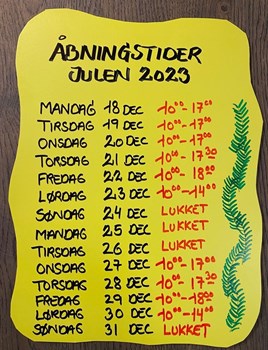 ÅBNINGSTIDER
JULEN 2023
MANDAG 18 DEC 10⁰⁰-17⁰⁰
TIRSDAG 19 DEC 10⁰⁰-17⁰⁰
ONSDAG 20 DEC 10⁰⁰-17⁰⁰
TORSDAG 21 DEC 10⁰⁰-17³⁰
FREDAG 22 DEC 10⁰⁰-18⁰⁰
LØRDAG 23 DEC 10⁰⁰-14⁰⁰
SØNDAG 24 DEC LUKKET
MANDAG 25 DEC LUKKET
TIRSDAG 26 DEC LUKKET
ONSDAG 27 DEC 10⁰⁰-17⁰⁰
TORSDAG 28 DEC 10⁰⁰-17³⁰
FREDAG 29 DEC 10⁰⁰-18⁰⁰
LØRDAG 30 DEC 10⁰⁰-14⁰⁰
SØNDAG 31 DEC LUKKET